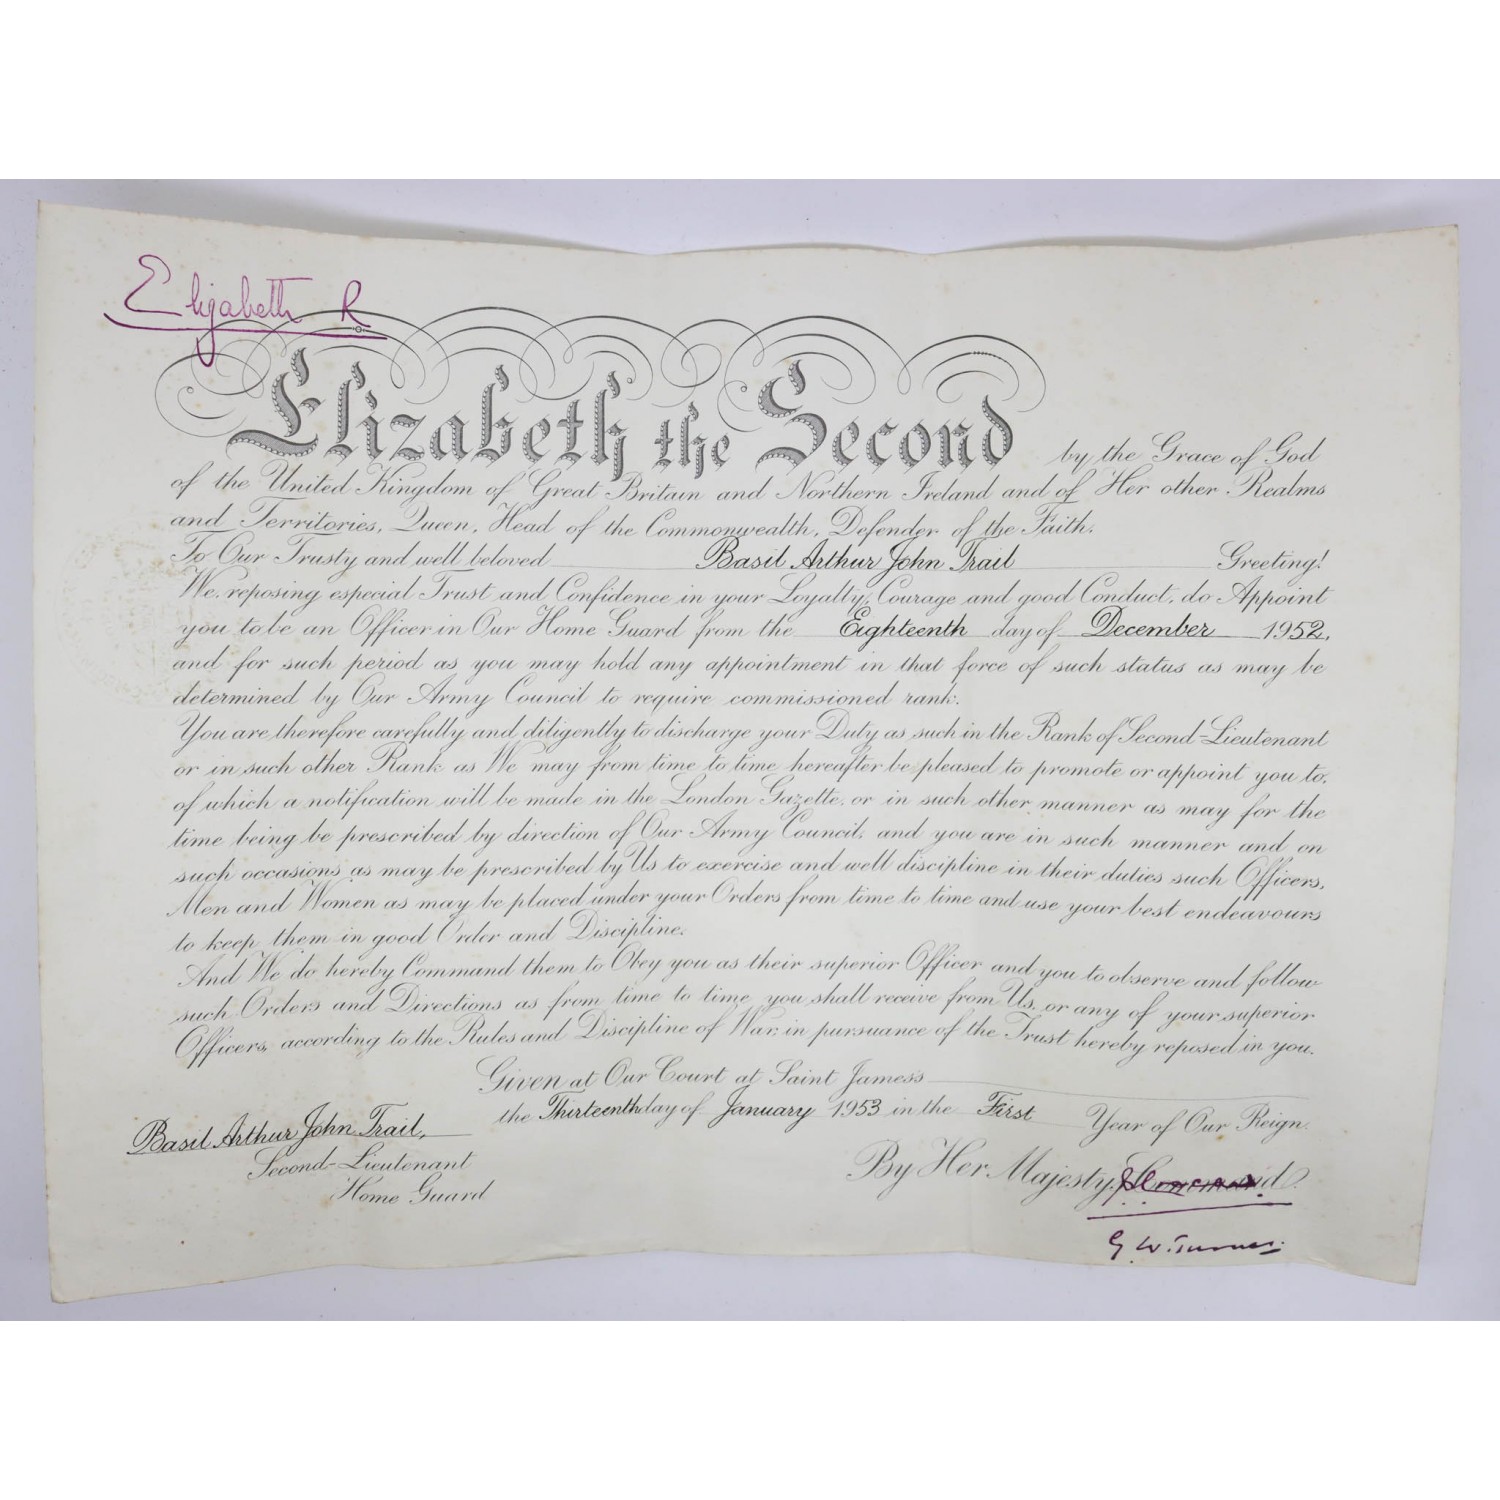 Elizabeth R
Elizabeth the Second by the Grace of God
of the United Kingdom of Great Britain and Northern Ireland and of Her other Realms
and Territories, Queen, Head of the Commonwealth, Defender of the Faith.
To Our Trusty and well beloved Basil Arthur John Trail Greeting!
We, reposing especial Trust and Confidence in your Loyalty, Courage and good Conduct, do Appoint
you to be an Officer in Our Home Guard from the Eighteenth day of December 1952,
and for such period as you may hold any appointment in that force of such status as may be
determined by Our Army Council to require commissioned rank.
You are, therefore carefully and diligently to discharge your Duty as such in the Rank of Second-Lieutenant
or in such other Rank as We may from time to time hereafter be pleased to promote or appoint you to,
of which a notification will be made in the London Gazette, or in such other manner as may for the
time being be prescribed by direction of Our Army Council, and you are in such manner and on
such occasions as may be prescribed by Us to exercise and well discipline in their duties such Officers,
Men and Women as may be placed under your Orders from time to time and use your best endeavours
to keep them in good Order and Discipline.
And We do hereby Command them to Obey you as their superior Officer and you to observe and follow
such Orders and Directions as from time to time you shall receive from Us, or any of your superior
Officers, according to the Rules and Discipline of War, in pursuance of the Trust hereby reposed in you.
Given at Our Court at Saint James's
the Thirteenth day of January 1953 in the First Year of Our Reign.
Basil Arthur John Trail,
Second-Lieutenant
Home Guard
By Her Majesty's Command.
G W. Turner.